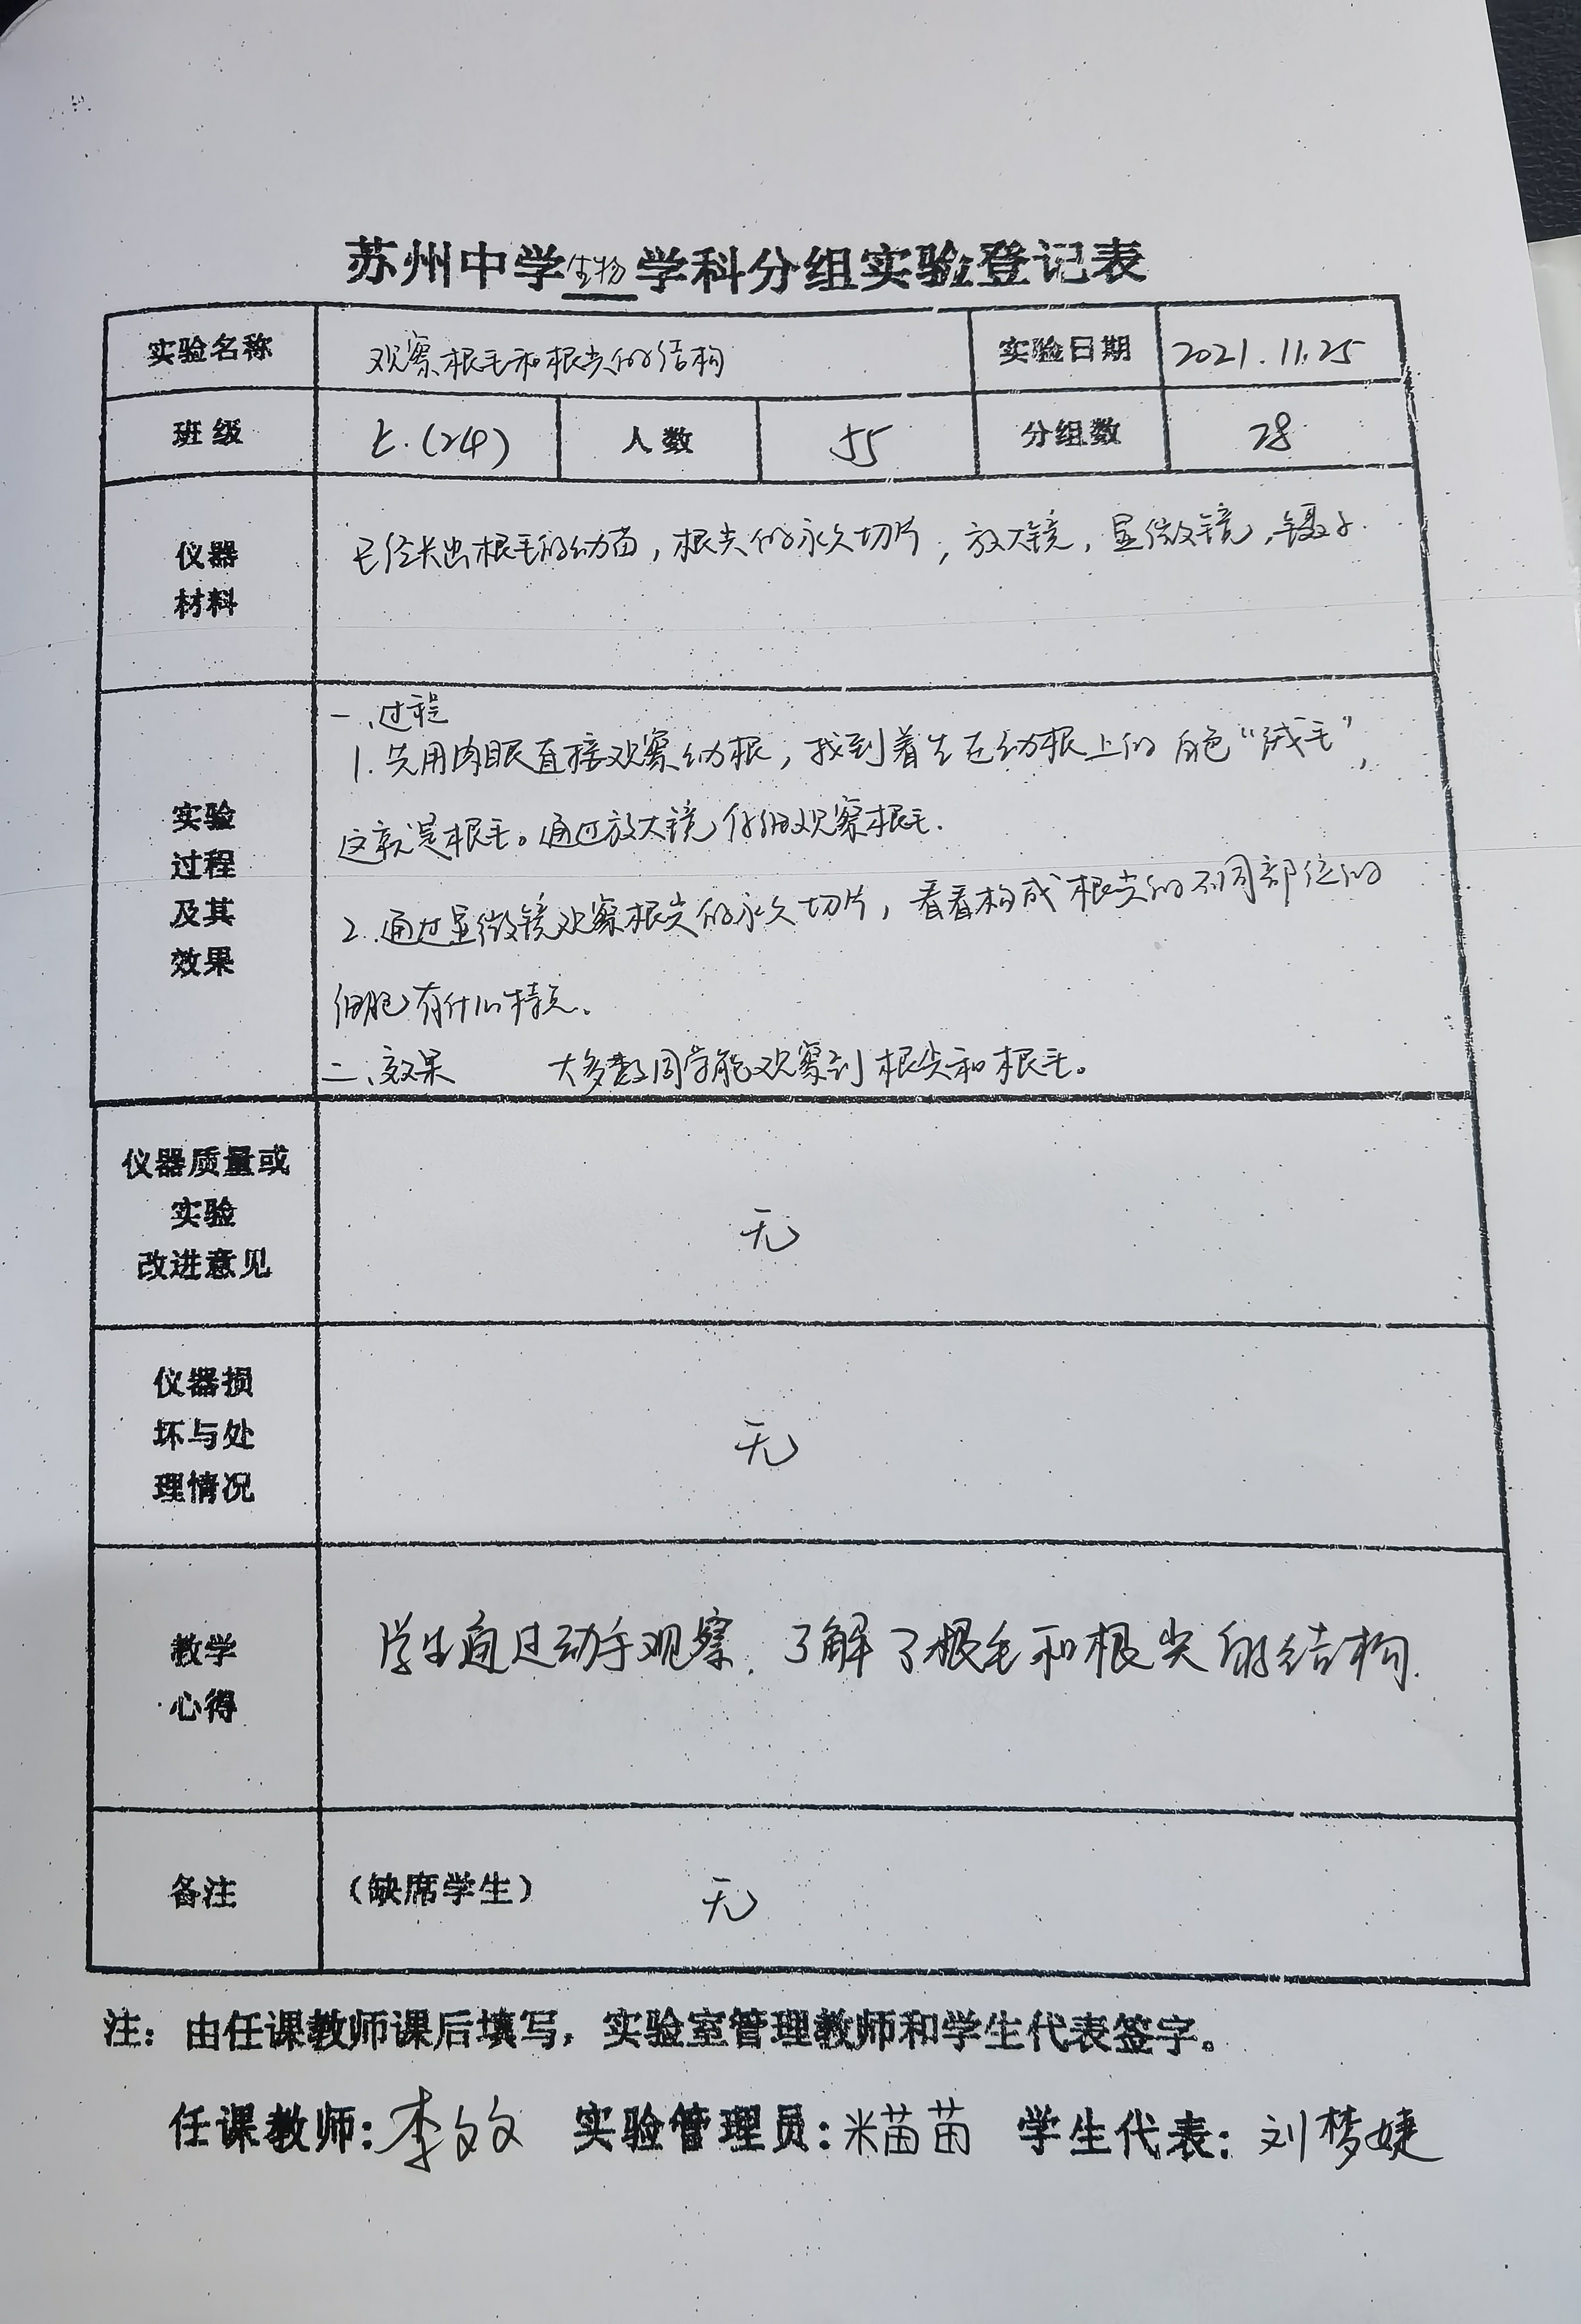 苏州中学生物学科分组实验登记表
实验名称 观察根毛和根尖的结构 实验日期 2021.11.25
班级 七.(24) 人数 55 分组数 28
仪器
材料
已经长出根毛的幼苗，根尖的永久切片，放大镜，显微镜，镊子.
实验
过程
及其
效果
一、过程
1.先用肉眼直接观察幼根，找到着生在幼根上的白色“绒毛”，
这就是根毛。通过放大镜仔细观察根毛.
2.通过显微镜观察根尖的永久切片，看看构成根尖的不同部位的
细胞有什么特点。
二、效果 大多数同学能观察到根尖和根毛。
仪器质量或
实验
改进意见
无
仪器损
坏与处
理情况
无
教学
心得
学生通过动手观察.了解了根毛和根尖的结构.
备注 (缺席学生) 无
注：由任课教师课后填写，实验室管理教师和学生代表签字。
任课教师:李文文 实验管理员:米苗苗 学生代表:刘梦婕